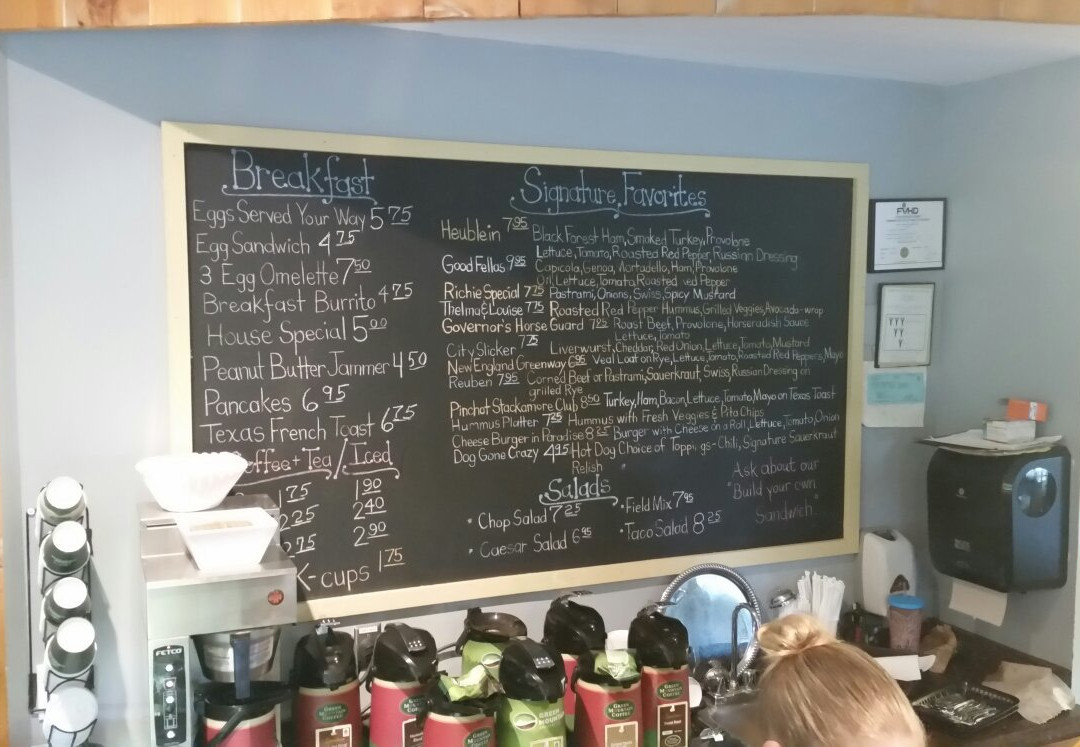 Breakfast
Eggs Served Your Way 5 75
Egg Sandwich 4 75
3 Egg Omelette 7 50
Breakfast Burrito 4 75
House Special 5 00
Peanut Butter Jammer 4 50
Pancakes 6 95
Texas French Toast 6 75
offee + Tea / Iced
1 75 1 90
2 25 2 40
2 75 2 90
K-cups 1 75
Signature Favorites
Heublein 7 95 Black Forest Ham, Smoked Turkey, Provolone
Lettuce, Tomato, Roasted Red Pepper, Russian Dressing
Good Fellas 9 95 Capicola, Genoa, Mortadello, Ham, Provolone
Oil, Lettuce, Tomato, Roasted red Pepper
Richie Special 7 75 Pastrami, Onions, Swiss, Spicy Mustard
Thelma & Louise 7 75 Roasted Red Pepper Hummus, Grilled Veggies, Avocado - wrap
Governor's Horse Guard 7 95 Roast Beef, Provolone, Horseradish Sauce
Lettuce, Tomato
City Slicker 7 75 Liverwurst, Cheddar, Red Onion, Lettuce, Tomato, Mustard
New England Greenway 6 95 Veal Loaf on Rye, Lettuce, Tomato, Roasted Red Peppers, Mayo
Reuben 7 95 Corned Beef or Pastrami, Sauerkraut, Swiss, Russian Dressing on
grilled Rye
Pinchot Stackamore Club 8 50 Turkey, Ham, Bacon, Lettuce, Tomato, Mayo on Texas Toast
Hummus Platter 7 25 Hummus with Fresh Veggies & Pita Chips
Cheese Burger in Paradise 8 25 Burger with Cheese on a Roll, Lettuce, Tomato, Onion
Dog Gone Crazy 4 95 Hot Dog Choice of Toppi gs - Chili, Signature Sauerkraut
Relish
Salads
• Chop Salad 7 25
• Field Mix 7 95
• Caesar Salad 6 95
• Taco Salad 8 25
Ask about our
"Build your own
Sandwich"
FVHD
FETCO
GREEN MOUNTAIN COFFEE